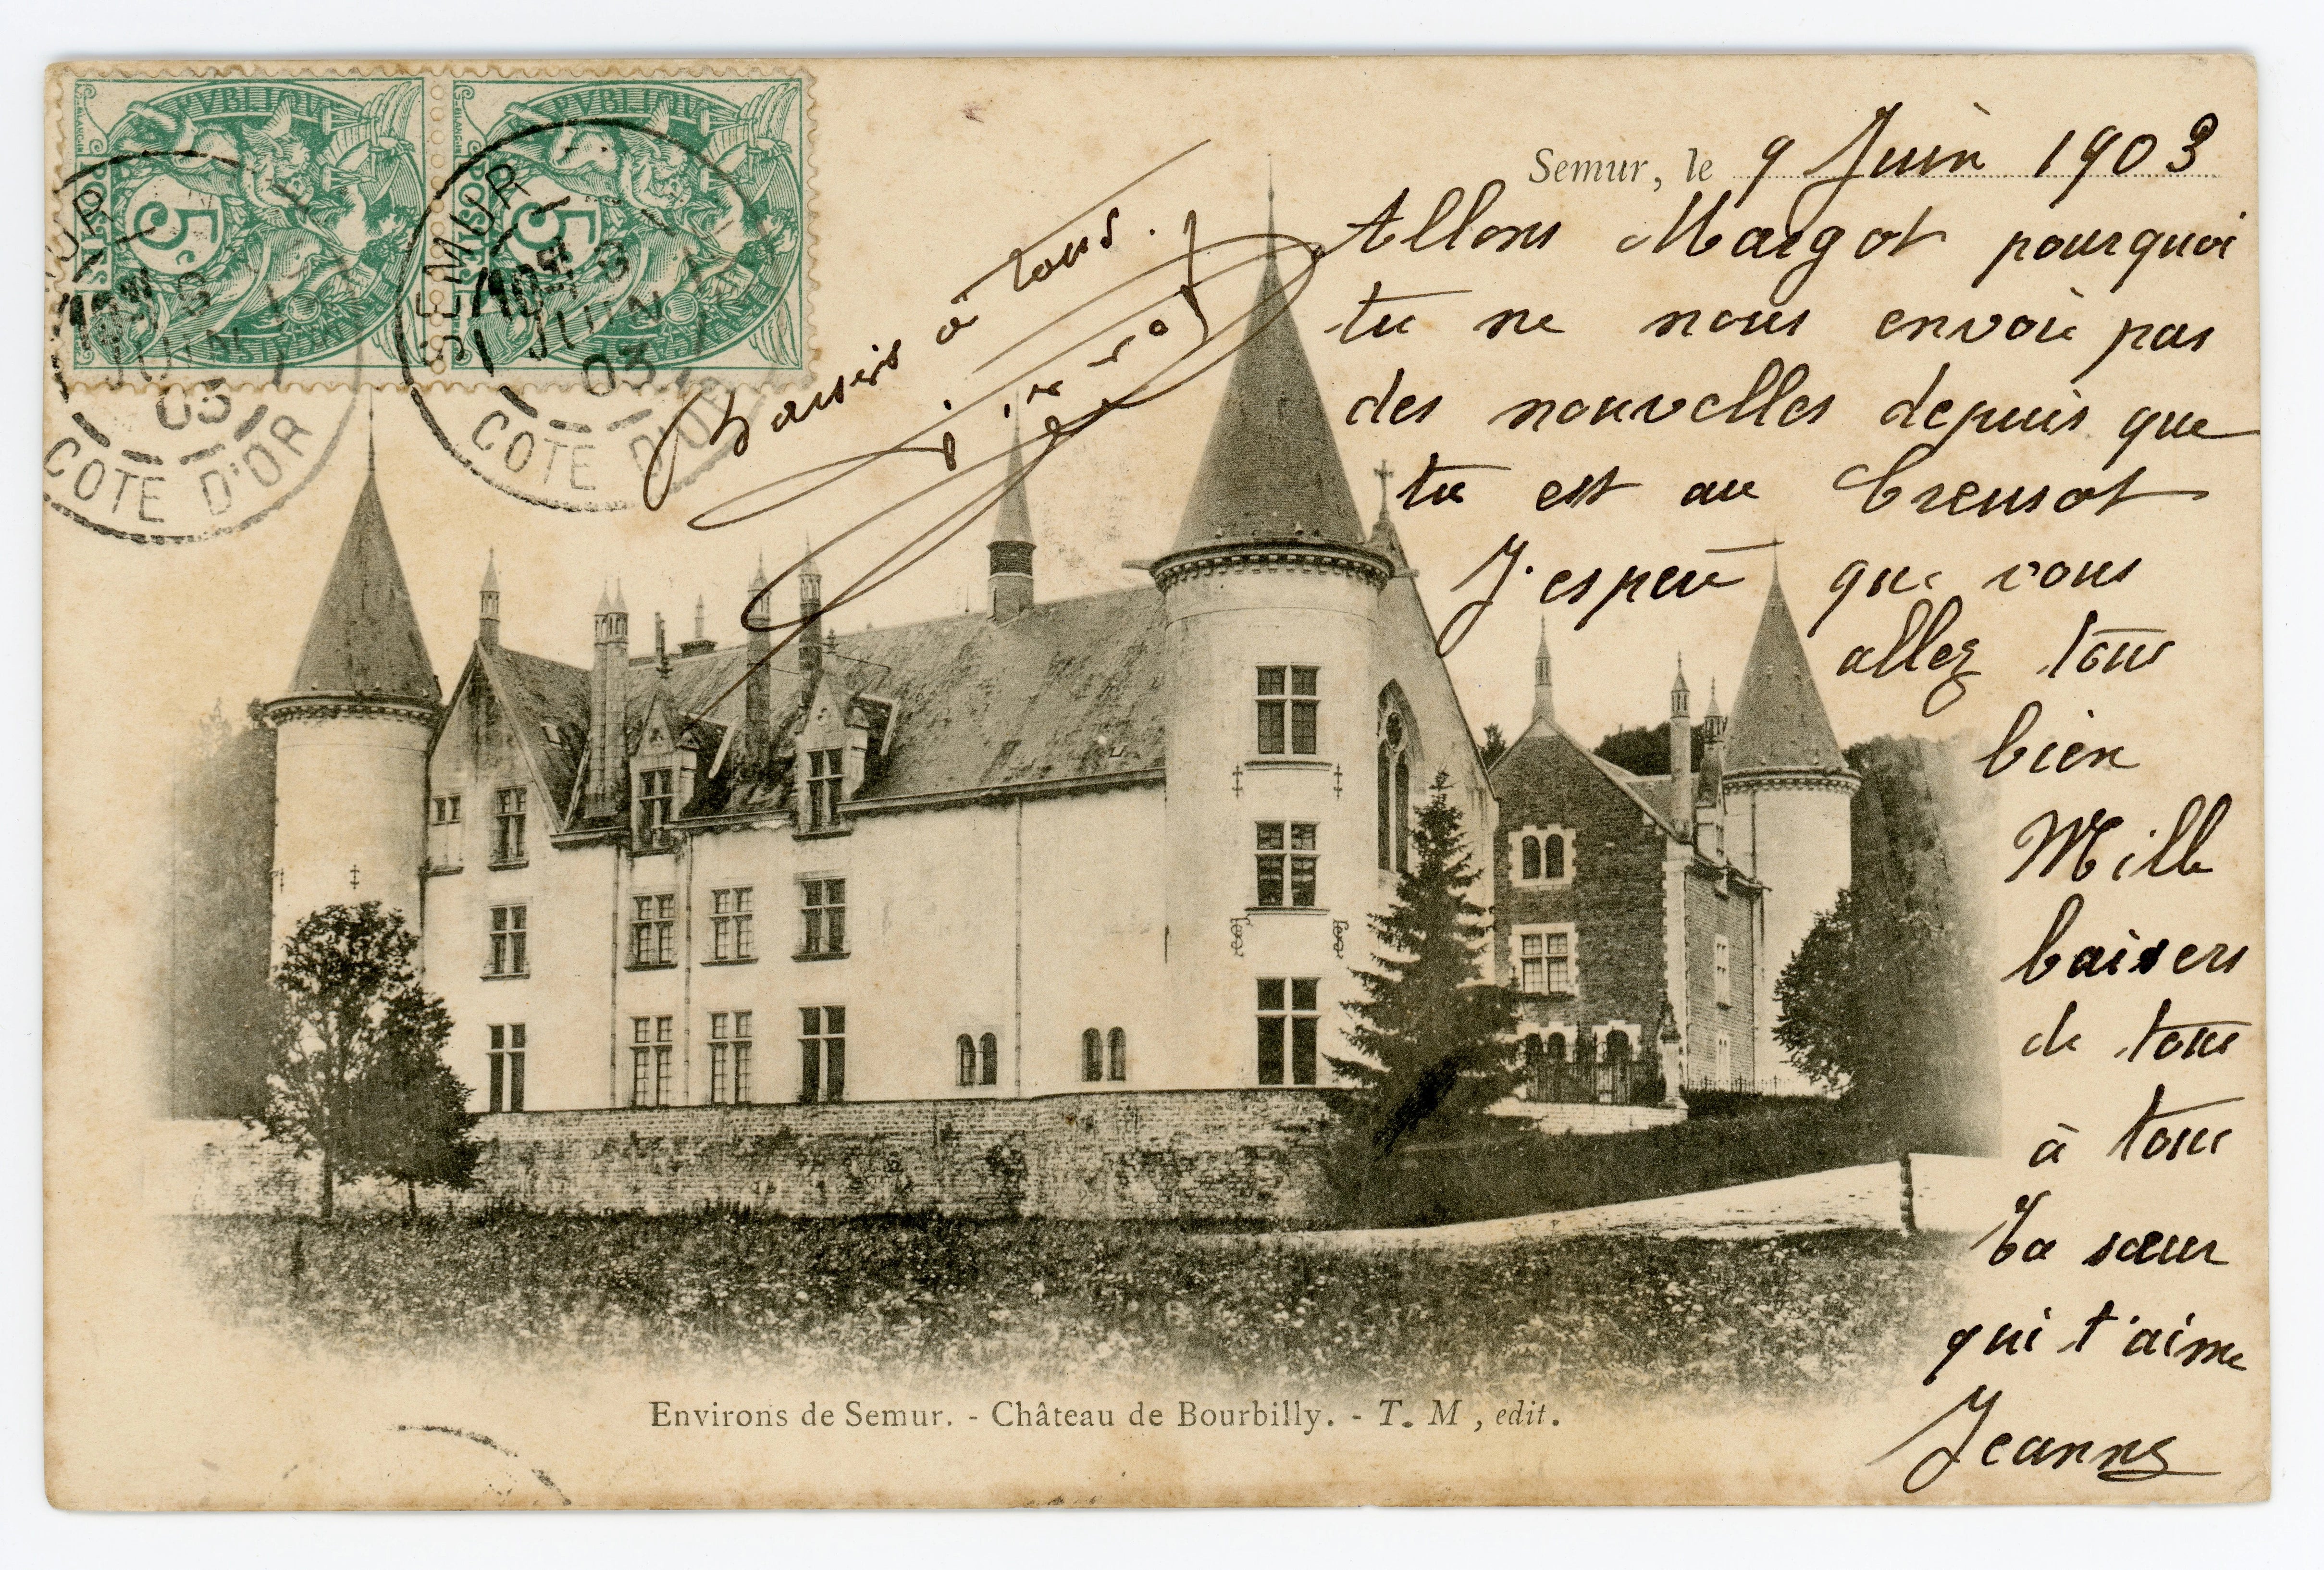 RÉPUBLIQUE
POSTES
5c
RÉPUBLIQUE
POSTES
5c
SEMUR
8
JUIN
03
COTE D'OR
SEMUR
8
JUIN
03
COTE D'OR
Semur, le 9 Juin 1903
Allons Margot pourquoi
tu ne nous envoie pas
des nouvelles depuis que
tu est au Creusot
J'espere que vous
allez tous
bien
Mille
baisers
de tous
à tous
Ta sœur
qui t'aime
Jeanne
Baisers à tous.
Environs de Semur. - Château de Bourbilly. - T. M, edit.